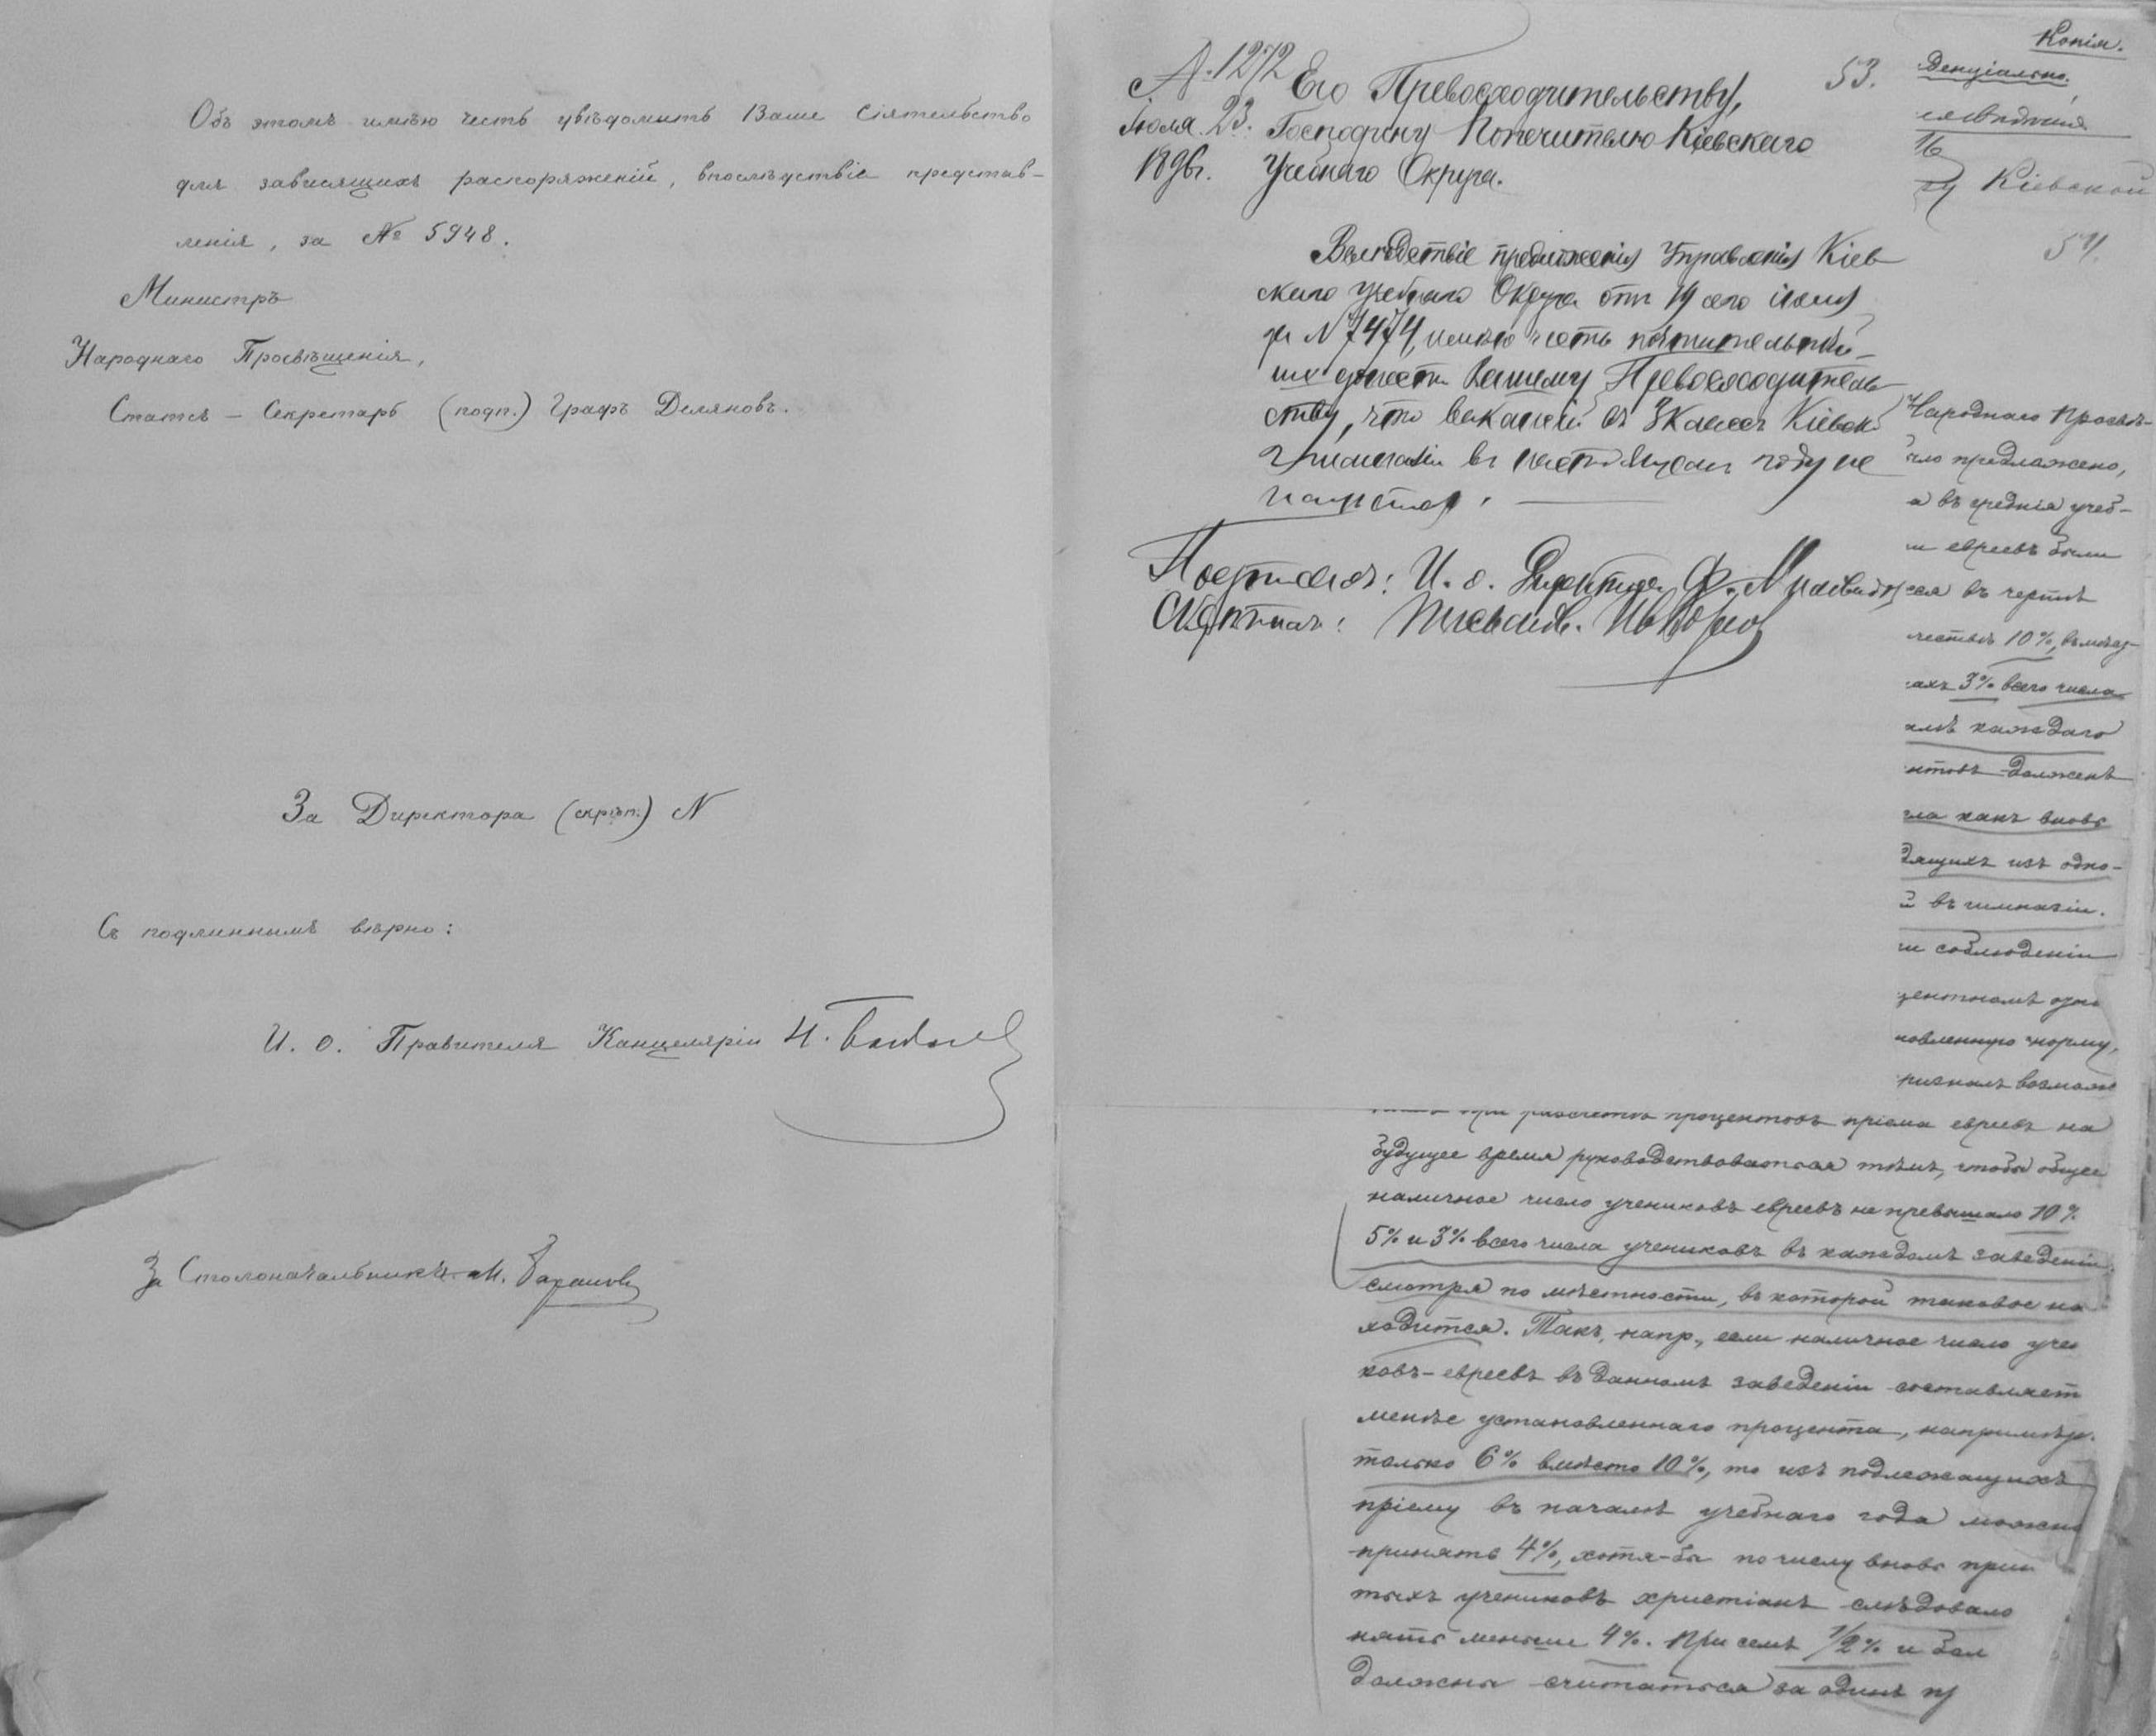 Объ этомъ имѣю честь увѣдомить Ваше Сіятельство
для зависящихъ распоряженій, впослѣдствіе представ-
ленія, за № 5948.
Министръ
Народнаго Просвѣщенія,
Статсъ-Секретарь (подп.) Графъ Деляновъ.
За Директора (скрѣп.) N
Съ подлиннымъ вѣрно:
И. о. Правителя Канцеляріи
За Столоначальника М.
№ 1272
Іюля 23.
1896г.
Его Превосходительству,
Господину Попечителю Кіевскаго
Учебнаго Округа.
53.
Вслѣдствіе предложенія Управленія Кіев
скаго Учебнаго Округа отъ 19 сего іюля
за № 7474, имѣю честь почтительнѣй-
ше донести Вашему Превосходитель
ству, что вакансій въ 3 классѣ Кіевск.
Гимназіи въ настоящемъ году не
имѣется.
Подписалъ: И. о. Директора Ф.
Скрѣпилъ: Письмов.
Копія.
денціально.
16
Кіевской
54.
Народнаго Просвѣ-
ло предложено,
а въ среднія учеб-
и евреевъ были
ся въ чертѣ
чествѣ 10%, въ мѣст-
ахъ 3% всего числа
алѣ каждаго
нтовъ долженъ
ла какъ вновь
дящихъ изъ одно-
й въ гимназіи.
и соблюденіи
центномъ
новленную норму,
призналъ возмож
при расчетѣ процентовъ пріема евреевъ на
будущее время руководствоваться тѣмъ, чтобы общее
наличное число учениковъ евреевъ не превышало 10%
5% и 3% всего числа учениковъ въ каждомъ заведеніи,
смотря по мѣстности, въ которой таковое на
ходится. Такъ, напр., если наличное число учен
ковъ-евреевъ въ данномъ заведеніи составляетъ
менѣе установленнаго процента, напримѣръ.
только 6% вмѣсто 10%, то изъ подлежащихъ
пріему въ началѣ учебнаго года можно
принять 4%, хотя-бы по числу вновь прин
тыхъ учениковъ христіанъ слѣдовало
нять меньше 4%. При семъ 1/2% и бол
должны считаться за одинъ п